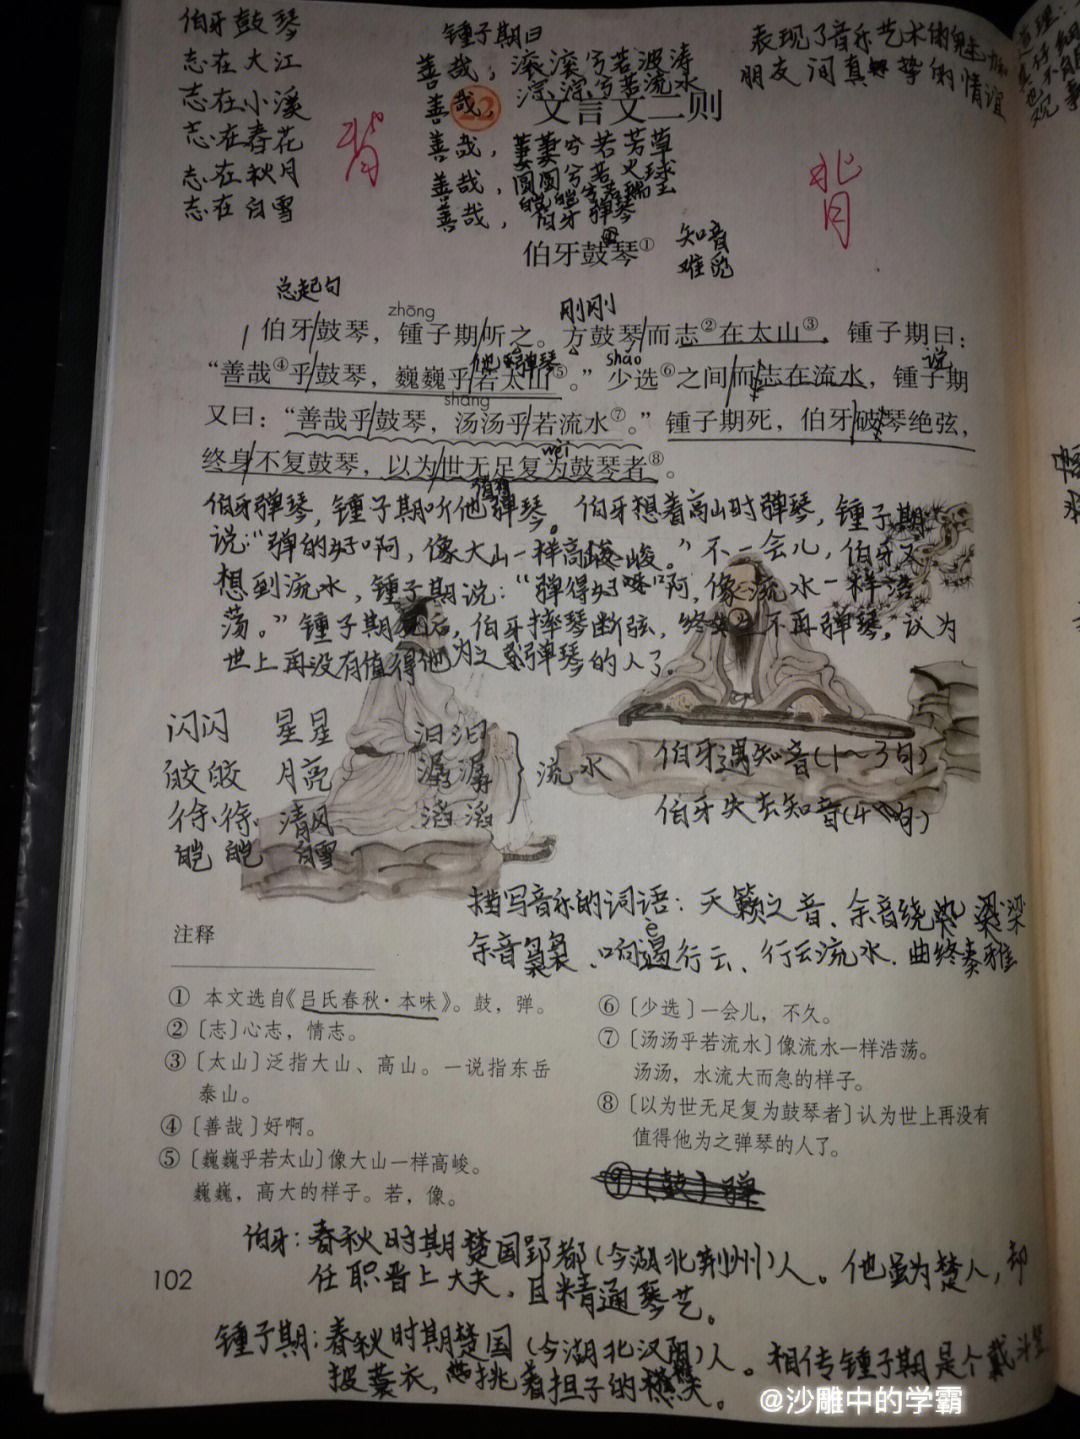 伯牙鼓琴
志在大江
志在小溪
志在春花
志在秋月
志在白雪
锺子期曰
善哉，滚滚兮若波涛
善哉，淙淙兮若流水
善哉，萋萋兮若芳草
善哉，圆圆兮若火球
善哉，皑皑兮若瑞
伯牙弹琴
表现了音乐艺术的魅力和
朋友间真挚的情谊
背
背
22 文言文二则
伯牙鼓琴①
知音
难觅
总起句
刚刚
zhōng
伯牙鼓琴，锺子期听之。方鼓琴而志②在太山③，锺子期曰：
他 弹琴
shǎo
说
“善哉④乎鼓琴，巍巍乎若太山⑤。”少选⑥之间而志在流水，锺子期
shāng
又曰：“善哉乎鼓琴，汤汤乎若流水⑦。”锺子期死，伯牙破琴绝弦，
wèi
终身不复鼓琴，以为世无足复为鼓琴者⑧。
值得
伯牙弹琴，锺子期听他弹琴。伯牙想着高山时弹琴，锺子期
说：“弹的好啊，像大山一样高峻。”不一会儿，伯牙又
想到流水，锺子期说：“弹得好啊，像流水一样浩
荡。”锺子期死后，伯牙摔琴断弦，终生不再弹琴，认为
世上再没有值得他为之弹琴的人了。
闪闪 星星
皎皎 月亮
徐徐 清风
皑皑 白雪
汩汩
潺潺 流水
滔滔
伯牙遇知音(1～3句)
伯牙失去知音(4句)
描写音乐的词语：天籁之音、余音绕梁
è
余音袅袅、响遏行云、行云流水、曲终奏雅
注释
① 本文选自《吕氏春秋·本味》。鼓，弹。
②〔志〕心志，情志。
③〔太山〕泛指大山、高山。一说指东岳
泰山。
④〔善哉〕好啊。
⑤〔巍巍乎若太山〕像大山一样高峻。
巍巍，高大的样子。若，像。
⑥〔少选〕一会儿，不久。
⑦〔汤汤乎若流水〕像流水一样浩荡。
汤汤，水流大而急的样子。
⑧〔以为世无足复为鼓琴者〕认为世上再没有
值得他为之弹琴的人了。
⑨〔鼓〕弹
伯牙：春秋时期楚国郢都(今湖北荆州)人。他虽为楚人，却
任职晋上大夫，且精通琴艺。
102
锺子期：春秋时期楚国(今湖北汉阳)人。相传锺子期是个戴斗笠
披蓑衣，挑着担子的樵夫。
@沙雕中的学霸